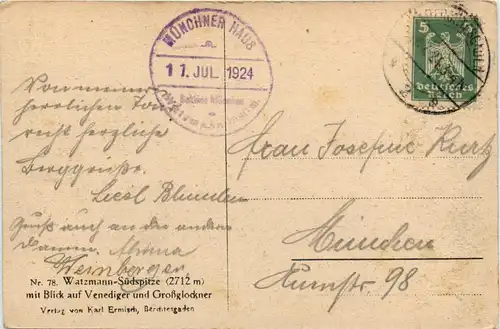 MÜNCHNER HAUS
11. JUL. 1924
Sektion München
5
Deutsches
Reich
Von meiner
herrlichen Tour
recht herzliche
Berggrüße.
Liesl
Gruß auch an die andern
Damen.
Weinberger
Frau Josefine Kurtz
München
98
Nr. 78. Watzmann-Südspitze (2712 m)
mit Blick auf Venediger und Großglockner
Verlag von Karl Ermisch, Berchtesgaden